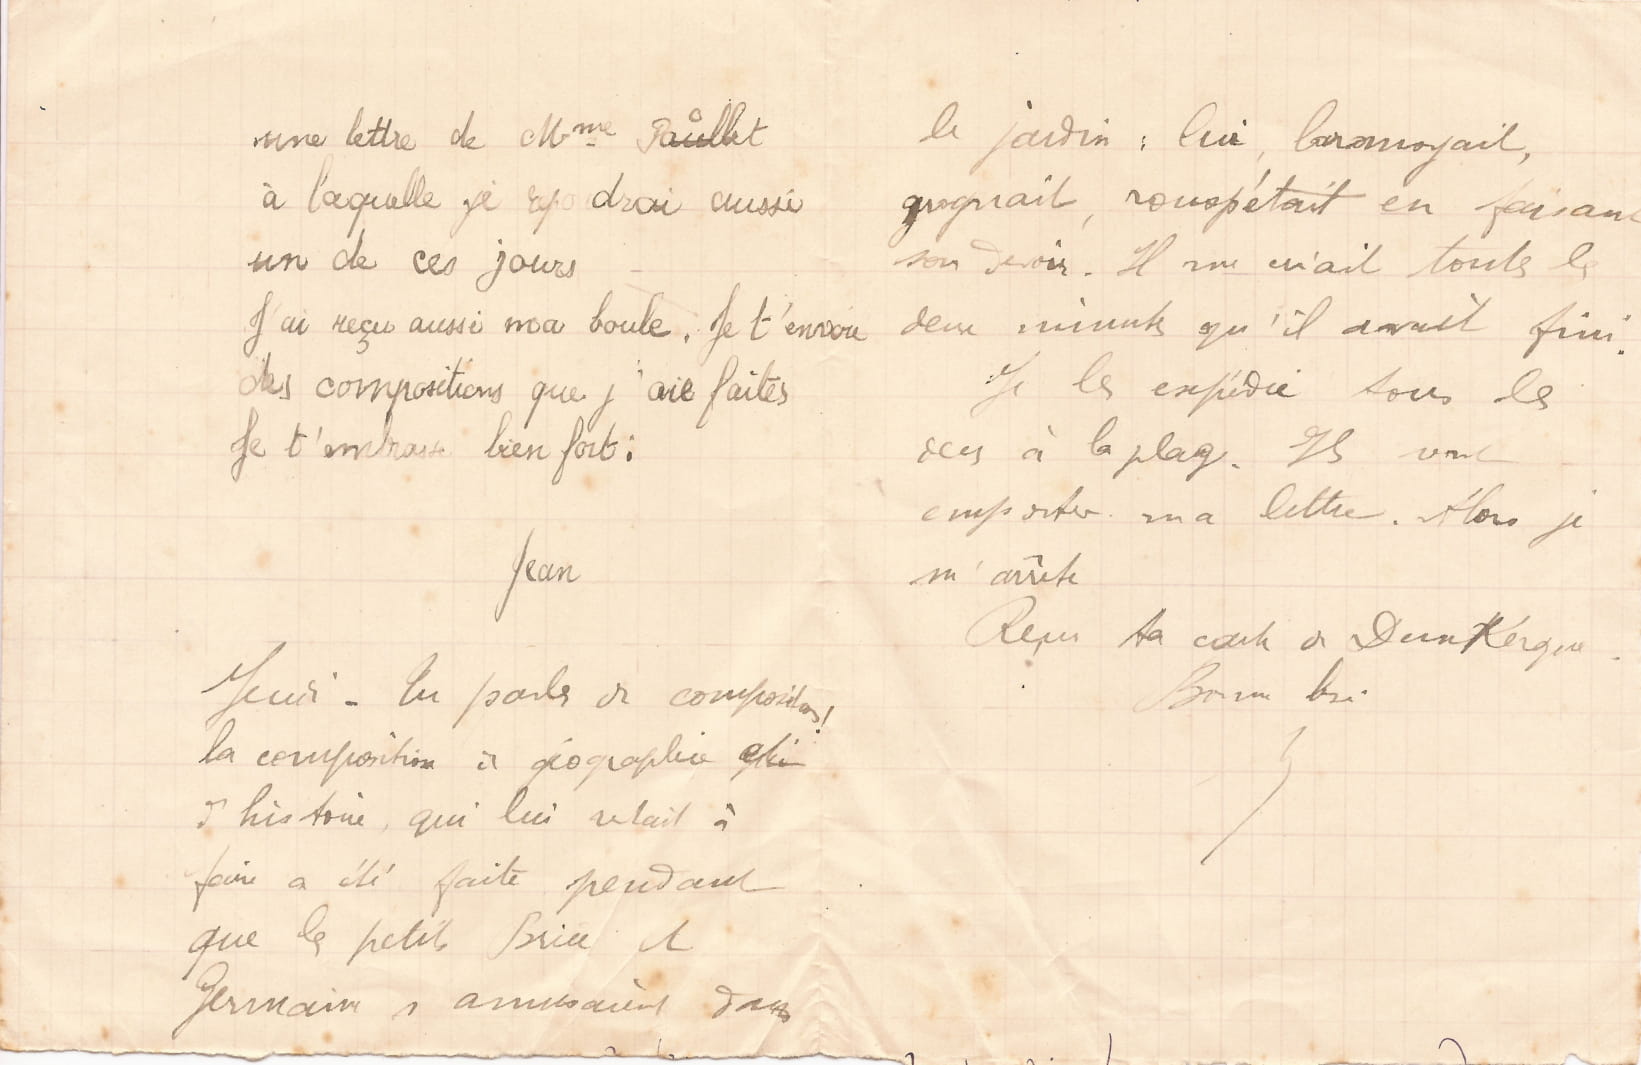 une lettre de Mme Paullet
à laquelle je repondrai aussi
un de ces jours
J'ai reçu aussi ma boule. Je t'envoie
des compositions que j'aie faites
Je t'embrasse bien fort:
Jean
Jeudi - Tu parles de compositions!
la composition de géographie
d'histoire, qui lui restait à
faire a été faite pendant
que les petits Brice et
Germaine s'amusaient dans
le jardin : lui, larmoyait,
grognait, rouspétait en faisant
son devoir. Il me criait toutes les
deux minutes qu'il avait fini.
Je les expédie tous les
deux à la plage. Ils vont
emporter ma lettre. Alors je
m'arrête
Reçu ta carte de Dunkerque.